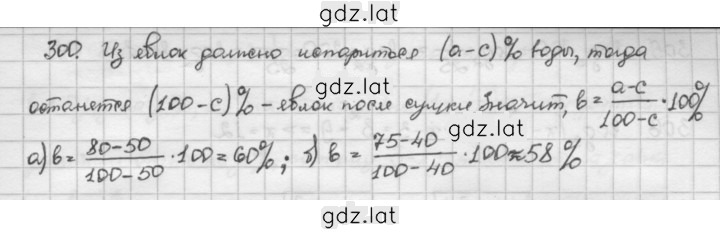 gdz.lat
300. Из яблок должно испариться (a-c)% воды, тогда
gdz.lat
останется (100-c)% - яблок после сушки. Значит, b = \frac{a-c}{100-c} · 100%
gdz.lat
а) b = \frac{80-50}{100-50} · 100 = 60%; б) b = \frac{75-40}{100-40} · 100 ≈ 58 %
gdz.lat